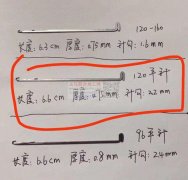 120-160
长度: 6.3cm 厚度: 0.75mm 针勾: 1.6mm
120平针
长度: 6.6cm 厚度: 0.75mm 针勾: 2.2mm
96平针
长度: 6.6cm 厚度: 0.8mm 针勾: 2.4mm